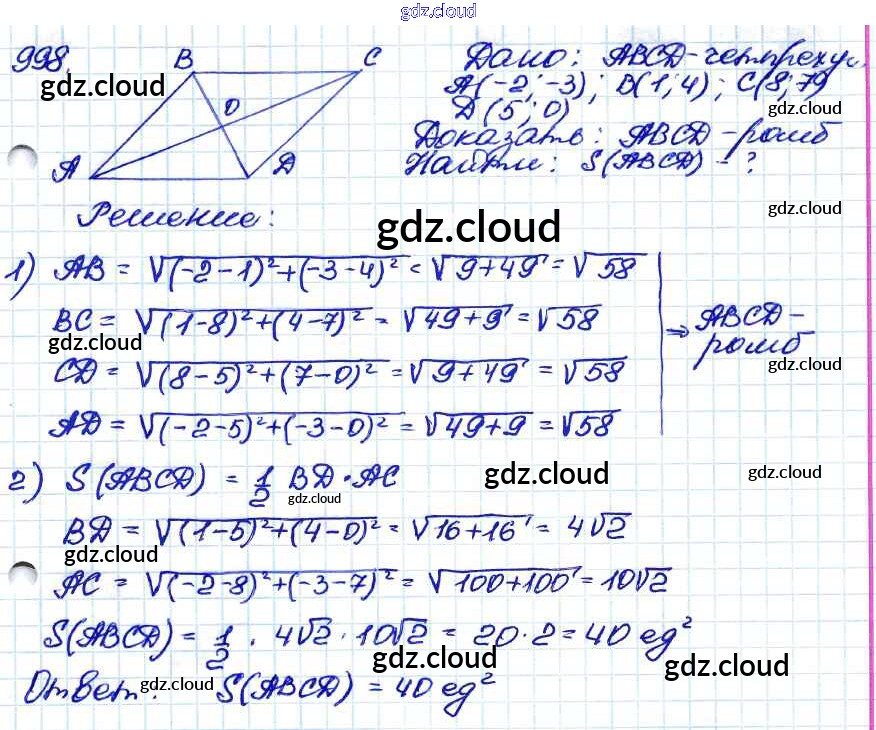 gdz.cloud
998.
gdz.cloud
B
C
O
A
D
Дано: ABCD-четыреху.
A(-2; -3); B(1; 4); C(8; 7)
gdz.cloud
D (5; 0)
Доказать: ABCD - ромб
Найти: S(ABCD) - ?
gdz.cloud
Решение:
gdz.cloud
1) AB = √(-2-1)²+(-3-4)² = √9+49 = √58
BC = √(1-8)²+(4-7)² = √49+9 = √58
gdz.cloud
CD = √(8-5)²+(7-0)² = √9+49 = √58
AD = √(-2-5)²+(-3-0)² = √49+9 = √58
⇒ ABCD -
ромб
gdz.cloud
2) S(ABCD) = 1/2 BD · AC
gdz.cloud
gdz.cloud
gdz.cloud
BD = √(1-5)²+(4-0)² = √16+16 = 4√2
gdz.cloud
AC = √(-2-8)²+(-3-7)² = √100+100 = 10√2
S(ABCD) = 1/2 · 4√2 · 10√2 = 20·2 = 40 ед²
gdz.cloud
Ответ: S(ABCD) = 40 ед²
gdz.cloud
gdz.cloud